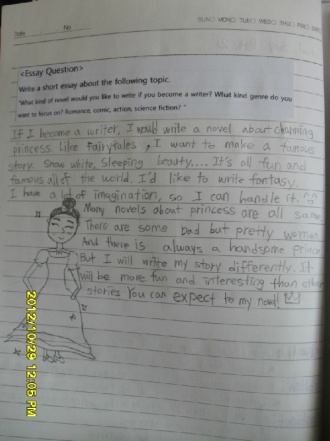 Date
No
SUN○ MON○ TUE○ WED○ THU○ FRI○
<Essay Question>
Write a short essay about the following topic.
"What kind of novel would you like to write if you become a writer? What kind genre do you
want to focus on? Romance, comic, action, science fiction? "
If I become a writer, I would write a novel about charming
princess like fairytales, I want to make a famous
story. Snow white, Sleeping beauty.... It's all fun and
famous all of the world. I'd like to write fantasy.
I have a lot of imagination, so I can handle it.
Many novels about princess are all same
There are some bad but pretty women
And there is always a handsome prince
But I will write my story differently. It
will be more fun and interesting than other
stories You can expect to my novel!
2012/10/29 12:05 PM